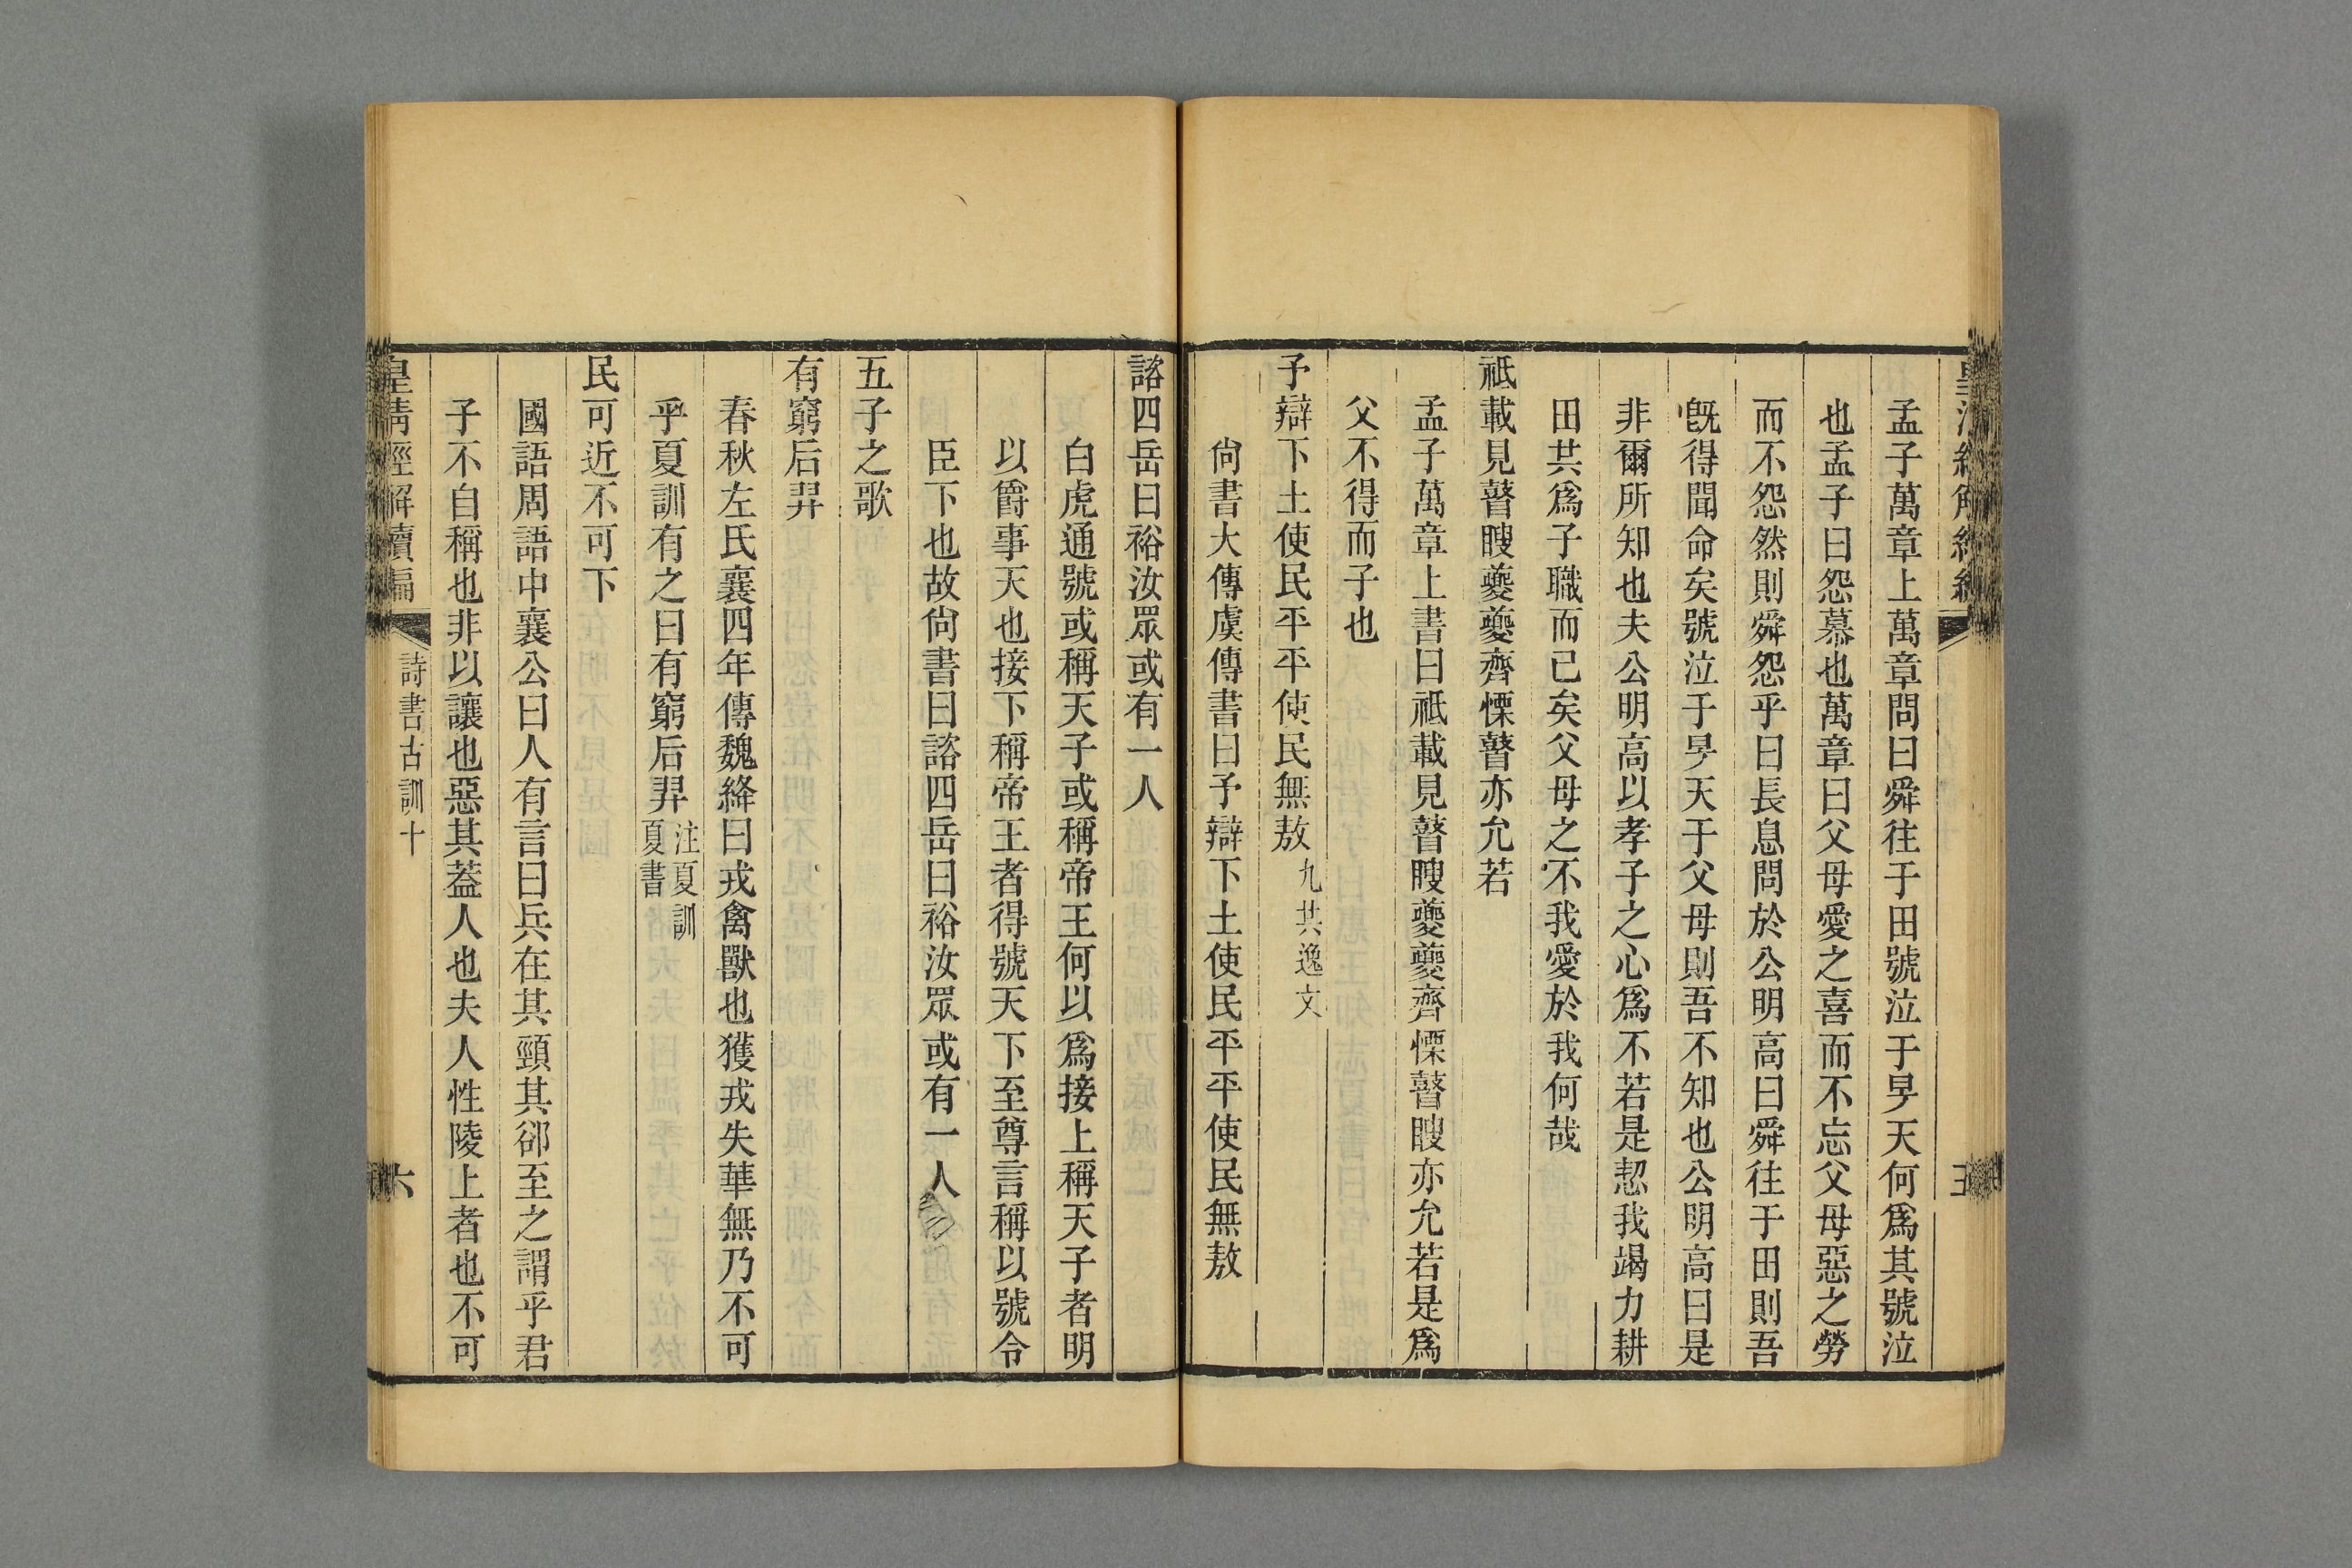 孟子萬章上萬章問曰舜往于田號泣于旻天何爲其號泣
也孟子曰怨慕也萬章曰父母愛之喜而不忘父母惡之勞
而不怨然則舜怨乎曰長息問於公明高曰舜往于田則吾
旣得聞命矣號泣于旻天于父母則吾不知也公明高曰是
非爾所知也夫公明高以孝子之心爲不若是恝我竭力耕
田共爲子職而已矣父母之不我愛於我何哉
祗載見瞽瞍夔夔齊慄瞽亦允若
孟子萬章上書曰祗載見瞽瞍夔夔齊慄瞽瞍亦允若是爲
父不得而子也
予辯下土使民平平使民無敖九共逸文
尙書大傳虞傳書曰予辯下土使民平平使民無敖
諮四岳曰裕汝眾或有一人
白虎通號或稱天子或稱帝王何以爲接上稱天子者明
以爵事天也接下稱帝王者得號天下至尊言稱以號令
臣下也故尙書曰諮四岳曰裕汝眾或有一人
五子之歌
有窮后羿
春秋左氏襄四年傳魏絳曰戎禽獸也獲戎失華無乃不可
乎夏訓有之曰有窮后羿注夏訓夏書
民可近不可下
國語周語中襄公曰人有言曰兵在其頸其郤至之謂乎君
子不自稱也非以讓也惡其蓋人也夫人性陵上者也不可
皇清經解續編 詩書古訓十 六